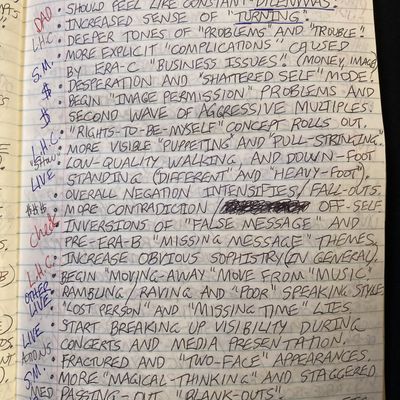 • SHOULD FEEL LIKE CONSTANT DILEMMAS.
DAD • INCREASED SENSE OF "TURNING."
L.H.C. • DEEPER TONES OF "PROBLEMS" AND "TROUBLE".
• MORE EXPLICIT "COMPLICATIONS" CAUSED
S.M. BY ERA-C "BUSINESS ISSUES". (MONEY, IMAGE)
$ • DESPERATION AND "SHATTERED SELF" MODE.
• BEGIN "IMAGE PERMISSION" PROBLEMS AND
$ SECOND WAVE OF AGGRESSIVE MULTIPLES.
• "RIGHTS-TO-BE-MYSELF" CONCEPT ROLLS OUT.
L.H.C. • MORE VISIBLE "PUPPETING" AND "PULL-STRINGING."
"SHOW" • LOW-QUALITY, WALKING AND DOWN-FOOT
LIVE STANDING (DIFFERENT" AND "HEAVY-FOOT).
• OVERALL NEGATION INTENSIFIES/FALL-OUTS.
$$$ • MORE CONTRADICTION OFF-SELF
Check INVERSIONS OF "FALSE MESSAGE" AND
PRE-ERA-B "MISSING MESSAGE" THEMES.
L.H.C. • INCREASE OBVIOUS SOPHISTRY (IN GENERAL).
• BEGIN "MOVING-AWAY" "MOVE FROM "MUSIC"
OTHER LIVE • RAMBLING/RAVING AND "POOR" SPEAKING STYLES
• "LOST PERSON" AND "MISSING TIME" LIES.
LIVE • START BREAKING UP VISIBILITY DURING
CONCERTS AND MEDIA PRESENTATION.
• FRACTURED AND "TWO-FACE" APPEARANCES.
S.M. • MORE "MAGICAL-THINKING" AND STAGGERED
MED PASSING-OUT "BLANK-OUTS".